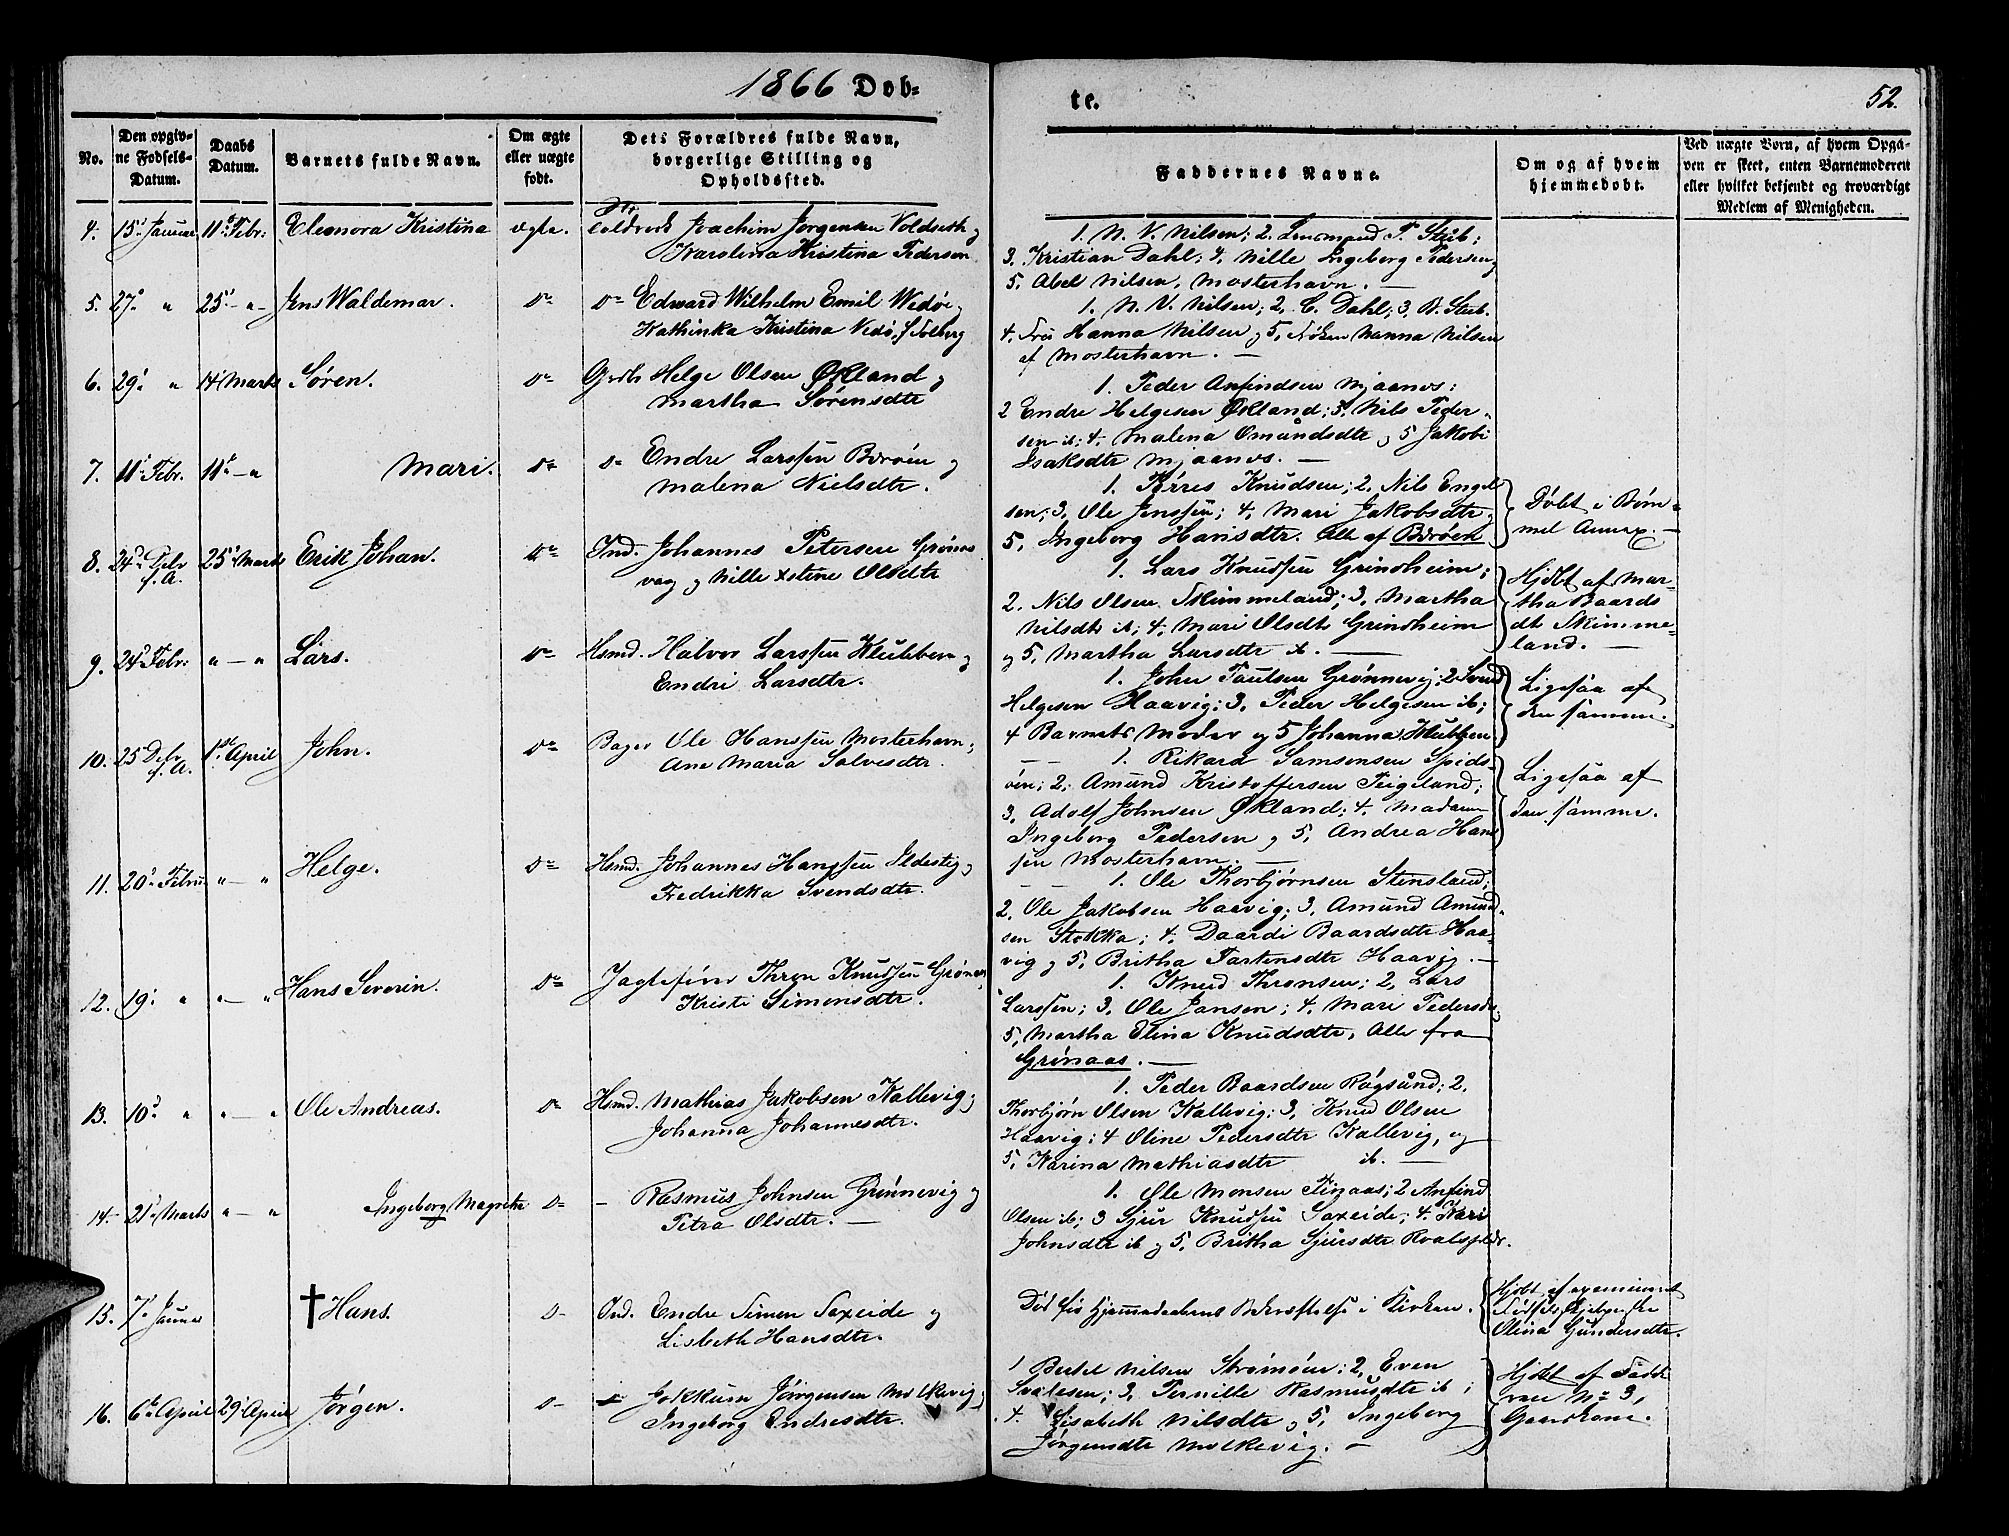 1866 Døb=
te.
52.
No.
Den opgiv-
ne Fødsels-
Datum.
Daabs
Datum.
Barnets fulde Navn.
Om ægte
eller uægte
født.
Dets Forældres fulde Navn,
borgerlige Stilling og
Opholdssted.
Faddernes Navne.
Om og af hvem
hjemmedøbt.
Ved uægte Børn, af hvem Opga-
ven er skeet, enten Barnemoderen
eller hvilket bekjendt og troværdigt
Medlem af Menigheden.
4. 15 Januar 11 Febr: Eleonora Kristina ægte. Joachim Jørgensen Voldseth og
Karolina Kristina Pedersen
1. N. V. Nilsen; 2. Lensmand P. Stub;
3. Kristian Dahl; 4. Nille Ingeborg Pedersen,
5. Abel Nilsen, Mosterhavn. —
5. 27 " 25 - " - Jens Waldemar. Do Do Edward Wilhelm Emil Wedøe,
Kathinka Kristina Vedø, f Solberg
1. N. V. Nilsen; 2. C. Dahl; 3. B. Stub.
4. Fru Hanna Nilsen og 5. Frøken Nanna Nilsen
af Mosterhavn. —
6. 29 " 14 Marts Søren. Do Grdb Helge Olsen Økland og
Martha Sørensdtr
1. Peder Anfindsen Mjaanæs;
2 Endre Helgesen Økland; 3. Nils Peder-
sen ib; 4. Malena Omundsdtr og 5 Jakobi
Isaksdtr Mjaanæs. —
7. 11 Febr. 11 - " Mari. Do Do Endre Larssen Børøen og
Malena Nielsdtr.
1. Tørres Knudsen; 2. Nils Engel
sen; 3. Ole Jenssen; 4. Mari Jakobsdtr,
5. Ingeborg Hansdtr. Alle af Børøen
Døbt i Bøm-
mel Annex. —
8. 24 Dcbr
f. A. 25 Marts Erik Johan. Do Ind. Johannes Petersen Grønne
vag og Nille Xstine Olsdtr
1. Lars Knudsen Grindheim;
2. Nils Olsen Skimmeland; 3. Martha
Nilsdtr ib; 4. Mari Olsdtr Grindheim
og 5. Martha Larsdtr ib. —
Hjdbt af Mar-
tha Baards
dt Skimme-
land. —
9. 24 Febr: " - " Lars. Do Hsmd. Halvor Larssen Klubben og
Endri Larsdtr.
1. John Paulsen Grønnevig; 2 Svend
Helgesen Haavig; 3. Peder Helgesen ib;
4 Barnets Moder og 5 Johanna Klubben.
Ligesaa af
den samme.
10. 25 Dcbr
f. A. 1st April John. Do Bager Ole Hanssen Mosterhavn,
Ane Maria Salvesdtr.
— — 1. Rikard Samsonsen Spids-
øen; 2. Amund Kristoffersen Teigeland;
3. Adolf Johnsen Økland; 4. Madam
Ingeborg Pedersen og 5. Andrea Hans
sen Mosterhavn. —
Ligesaa af
den samme.
11. 20 Febru " - " Helge. Do Hsmd. Johannes Hanssen Ildestig,
Fredrikka Svendsdtr.
— — 1. Ole Thorbjørnsen Stensland;
2. Ole Jakobsen Haavig; 3. Amund Amund-
sen Stokka; 4. Daardi Baardsdtr Haa-
vig og 5. Britha Tartensdtr Haavig. —
12. 19 " " - " Hans Severin. Do Thron Knudsen Grønaas,
Kristi Simonsdtr.
1. Knud Thronsen; 2. Lars
Larssen; 3. Ole Jansen; 4. Mari Pedersdtr,
5. Martha Elina Knudsdtr. Alle fra
Grønaas. —
13. 10 " " - " Ole Andreas. Do Hsmd. Mathias Jakobsen Kallevig,
Johanna Johannesdtr.
1. Peder Baardsen Røgsund; 2.
Thorbjørn Olsen Kallevig; 3. Knud Olsen
Haavig; 4 Oline Pedersdtr Kallevig, og
5. Karina Mathiasdtr ib. —
14. 21 Marts " - " Ingeborg Magrethe Do — Rasmus Johnsen Grønnevig og
Petra Olsdtr. —
1. Ole Monsen Finaas; 2 Anfind
Olsen ib; 3 Sjur Knudsen Saxeide; 4. Kari
Johnsdtr ib og 5. Britha Sjursdtr
15. 7 Januar † Hans. D- Ind. Endre Simon Saxeide og
Lisbeth Hansdtr.
Død før Hjemmedaabens Bekræftelse i Kirken.
Hjdbt af examineret
Olina Gundersdtr.
16. 6 April 29 April Jørgen. D- Jokkum Jørgensen Molkevig,
Ingeborg Endresdtr.
1 Bertel Nilsen Strømøen; 2. Even
3. Pernille Rasmusdtr ib;
4. Lisabeth Nilsdtr og 5. Ingeborg
Jørgensdtr Molkevig. —
Hjdbt af Fadd
No 3,
Gaardkone.